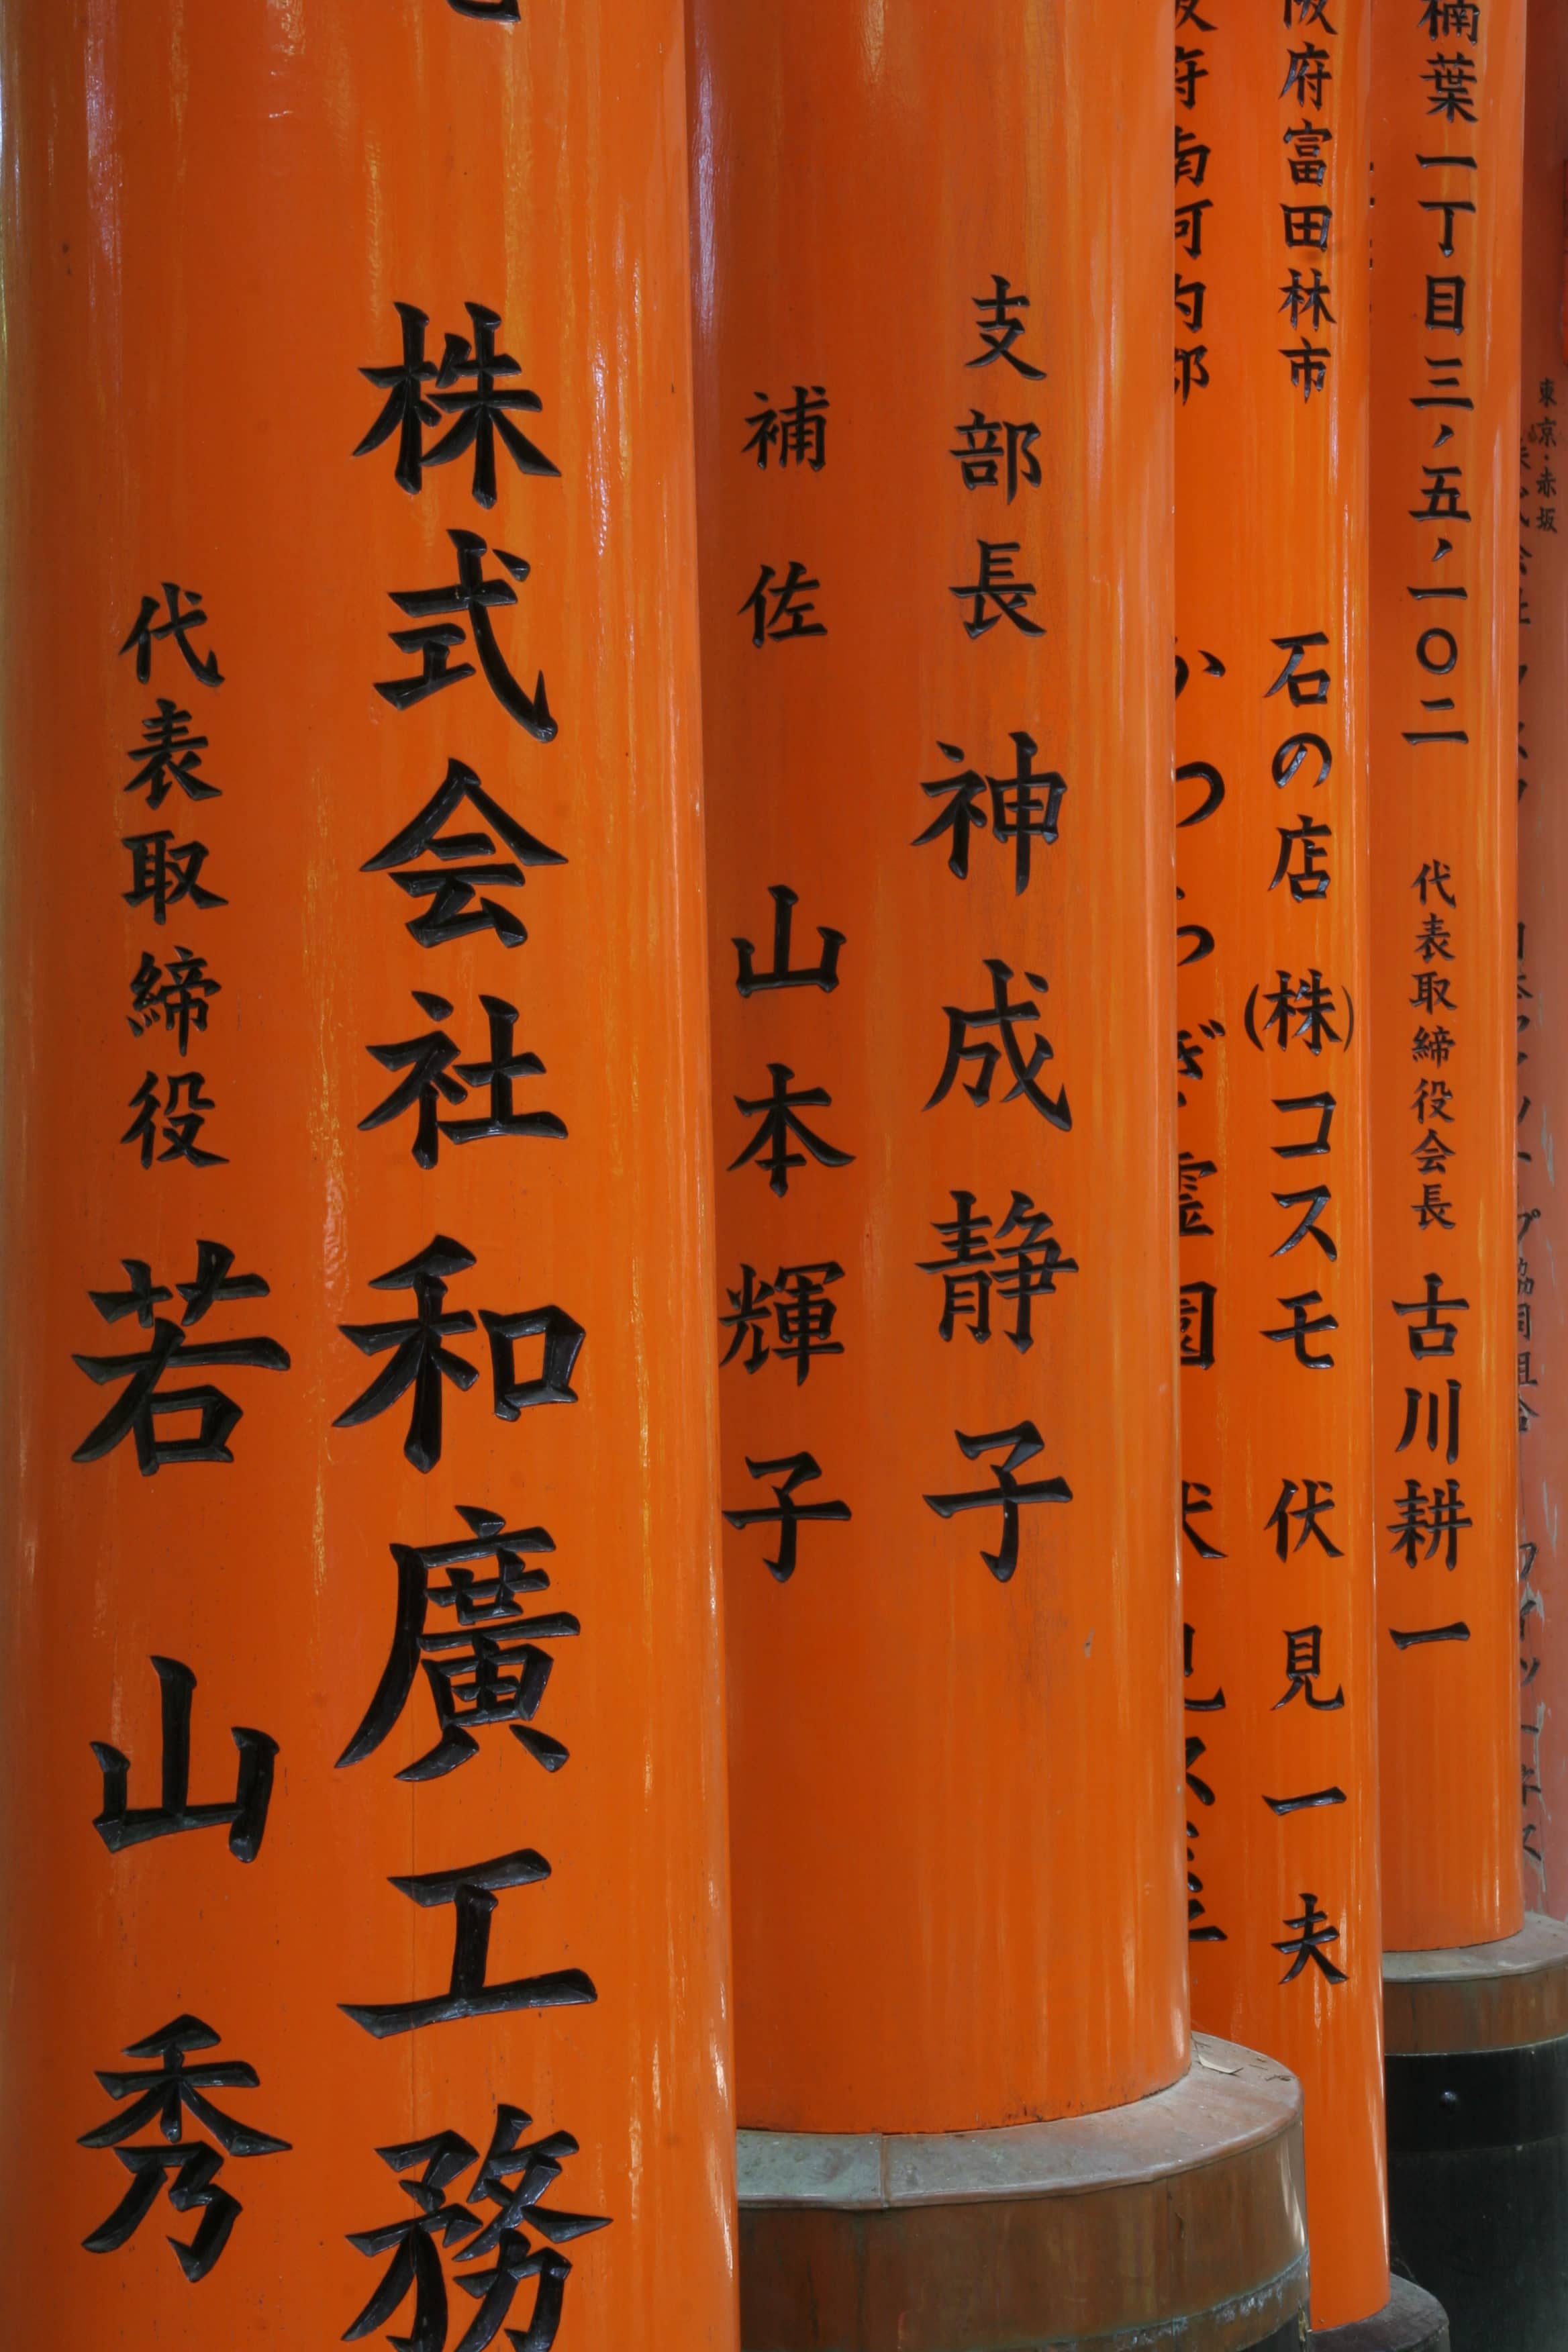 株式会社和廣工務
代表取締役 若山秀
支部長 神成静子
補佐 山本輝子
府富田林市 石の店 (株)コスモ 伏見一夫
南河内郡
霊園
楠葉一丁目三、五、一〇二 代表取締役会長 古川耕一
東京・赤坂